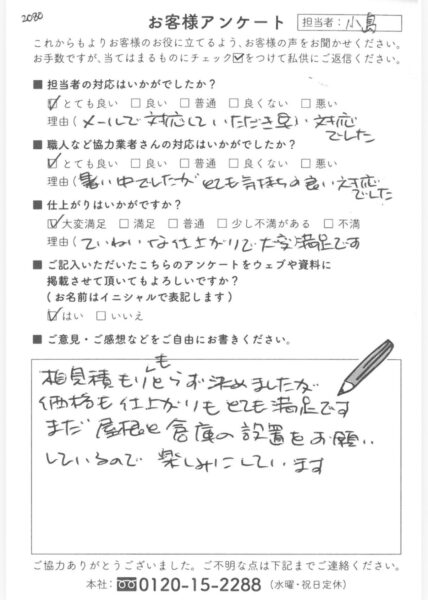 2080
お客様アンケート 担当者: 小島
これからもよりお客様のお役に立てるよう、お客様の声をお聞かせください。
お手数ですが、当てはまるものにチェック☑をつけて私供にご返信ください。
■ 担当者の対応はいかがでしたか?
☑とても良い □良い □普通 □良くない □悪い
理由( メールで対応していただき良い対応
でした
■ 職人など協力業者さんの対応はいかがでしたか?
☑とても良い □良い □普通 □良くない □悪い
理由( 暑い中でしたがとても気持ちの良い対応
でした
■ 仕上がりはいかがですか?
☑大変満足 □満足 □普通 □少し不満がある □不満
理由( ていねいな仕上がりで大変満足です
■ ご記入いただいたこちらのアンケートをウェブや資料に
掲載させて頂いてもよろしいですか?
(お名前はイニシャルで表記します)
☑はい □いいえ
■ ご意見・ご感想などをご自由にお書きください。
相見積もりもとらず決めましたが
価格も仕上がりもとても満足です
まだ屋根と倉庫の設置をお願い
しているので楽しみにしています
ご協力ありがとうございました。ご不明な点は下記までご連絡ください。
本社: 0120-15-2288 (水曜・祝日定休)